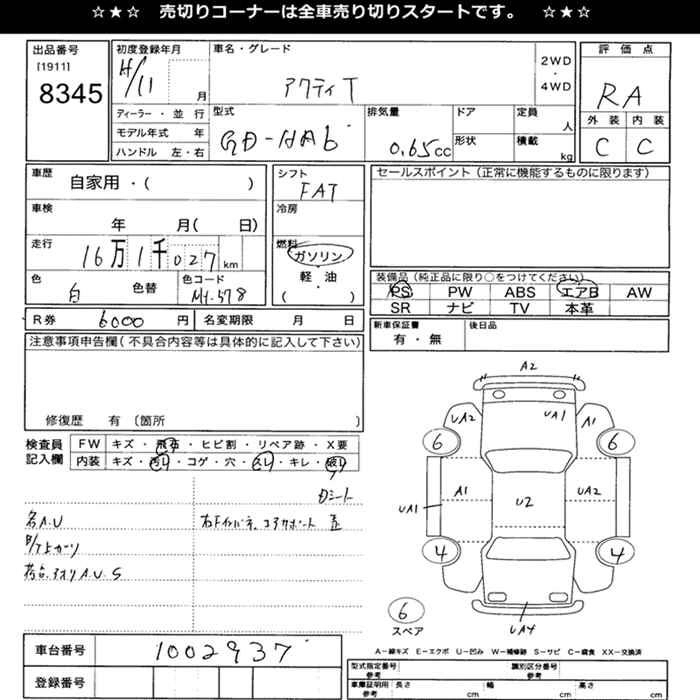 ☆★☆ 売切りコーナーは全車売り切りスタートです。 ☆★☆
出品番号
[1911]
8345
初度登録年月
H/11 月
ディーラー・並行
モデル年式 年
ハンドル 左・右
車名・グレード
アクティT
2WD
・
4WD
型式
GD-HA6
排気量
0.65cc
ドア
形状
定員
人
積載
kg
評価点
RA
外装 内装
C C
車歴
自家用・( )
車検
年 月( 日)
走行
16万1千027km
色
白 色替
色コード
NH-578
シフト
FAT
冷房
燃料
ガソリン
軽・油
( ・ )
セールスポイント(正常に機能するものに限ります)
装備品(純正品に限り○をつけてください)
PS PW ABS エアB AW
SR ナビ TV 本革
R券 6000円 名変期限 月 日
新車保証書
有・無
後日品
注意事項申告欄(不具合内容等は具体的に記入して下さい)
修復歴 有 〔箇所 〕
検査員
記入欄
FW キズ・飛石・ヒビ割・リペア跡・X要
内装 キズ・汚レ・コゲ・穴・スレ・キレ・破レ
シート
A.U
A.U.S
A2
UA2 UA1 A1
6 6
UA1 A1 U2 UA2
4 4
6
スペア
UA4
A−線キズ E−エクボ U−凹み W−補修跡 S−サビ C−腐食 XX−交換済
車台番号 1002937
登録番号
型式指定番号
参考
識別区分番号
参考
車庫証明用
参考
長さ cm 幅 cm 高さ cm